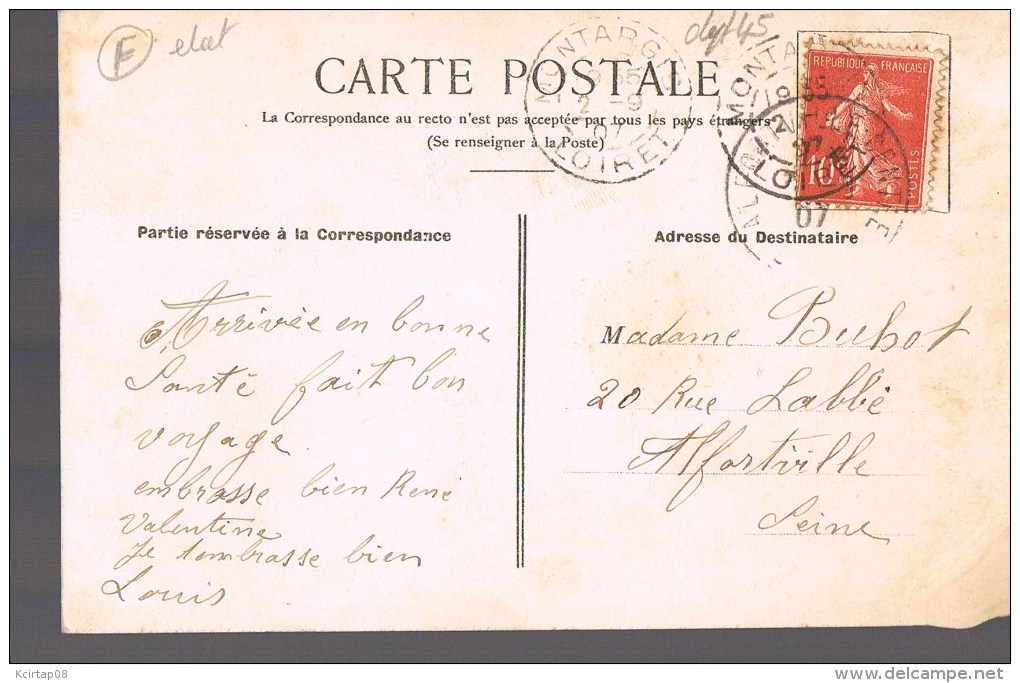 F elat
dpt 45
CARTE POSTALE
La Correspondance au recto n'est pas acceptée par tous les pays étrangers
(Se renseigner à la Poste)
MONTARGIS
2 -9
07
LOIRET
MONTARGIS
LOIRET
07
REPUBLIQUE FRANÇAISE
10
POSTES
Partie réservée à la Correspondance
Arrivée en bonne
Santé fait bon
voyage
embrasse bien René
Valentine
Je t'embrasse bien
Louis
Adresse du Destinataire
Madame Buhot
20 Rue Labbé
Alfortville
Seine
Kcirtap08
delcampe.net